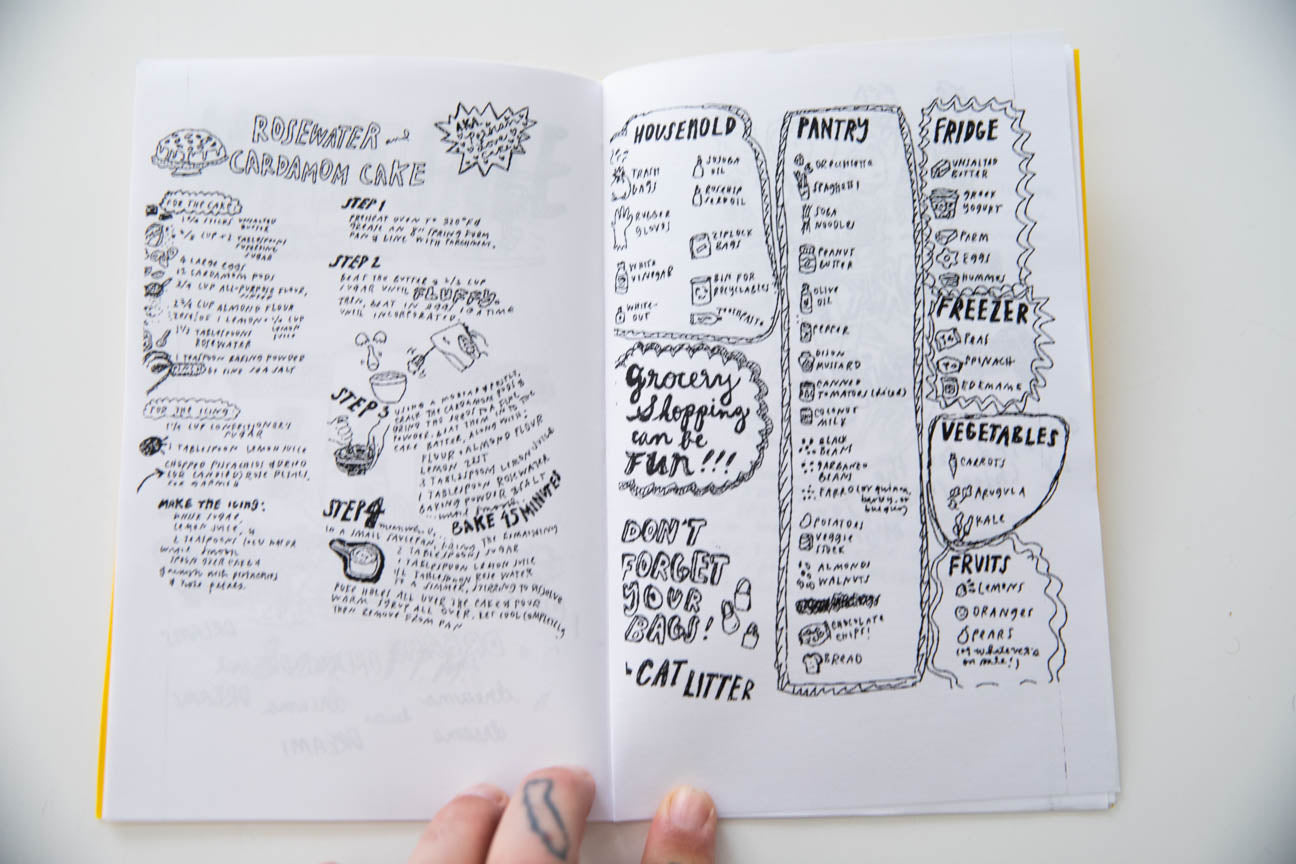 ROSEWATER and
CARDAMOM CAKE
AKA
FOR THE CAKE
STICKS UNSALTED
BUTTER
CUP + 2 TABLESPOONS
SUGAR
4 LARGE EGGS
12 CARDAMOM PODS
3/4 CUP ALL-PURPOSE FLOUR,
CUP ALMOND FLOUR
1 LEMON + 1/4 CUP
LEMON
JUICE
1 1/2 TABLESPOON
ROSEWATER
1 TEASPOON BAKING POWDER
FINE SEA SALT
FOR THE ICING
CUP CONFECTIONERY
SUGAR
1 TABLESPOON LEMON JUICE
CHOPPED PISTACHIOS & DRIED
(OR CANDIED) ROSE PETALS,
FOR GARNISH
MAKE THE ICING:
SUGAR,
LEMON JUICE, &
2 TEASPOONS COLD WATER
until smooth.
SPOON OVER CAKE &
garnish with pistachios
& rose petals.
STEP 1
PREHEAT OVEN TO 320°F &
GREASE AN 8" SPRING FORM
PAN & LINE WITH PARCHMENT.
STEP 2
BEAT THE BUTTER & 1/2 CUP
SUGAR UNTIL FLUFFY.
THEN, BEAT IN EGGS, 1 @ A TIME
UNTIL INCORPORATED.
STEP 3
USING A MORTAR & PESTLE,
CRACK THE CARDAMOM PODS &
GRIND THE SEEDS TO A FINE
POWDER. BEAT THEM INTO THE
CAKE BATTER, ALONG WITH:
FLOUR + ALMOND FLOUR
LEMON ZEST
TABLESPOON LEMON JUICE
1 TABLESPOON ROSEWATER
BAKING POWDER & SALT
...until smooth.
BAKE 45 MINUTES
STEP 4
meanwhile...
IN A SMALL SAUCEPAN, BRING THE REMAINING
2 TABLESPOONS SUGAR
1 TABLESPOON LEMON JUICE
1/2 TABLESPOON ROSE WATER
TO A SIMMER, STIRRING TO DISSOLVE
POKE HOLES ALL OVER THE CAKE & POUR
WARM SYRUP ALL OVER. LET COOL COMPLETELY
THEN REMOVE FROM PAN
HOUSEHOLD
TRASH
BAGS
RUBBER
GLOVES
WHITE
VINEGAR
WHITE-
OUT
JOJOBA
OIL
ROSEHIP
SEED OIL
ZIPLOCK
BAGS
BIN FOR
RECYCLABLES
TOOTHPASTE
Grocery
Shopping
can be
FUN!!!
DON'T
FORGET
YOUR
BAGS!
CAT LITTER
PANTRY
ORECCHIETTE
SPAGHETTI
SOBA
NOODLES
PEANUT
BUTTER
OLIVE
OIL
PEPPER
DIJON
MUSTARD
CANNED
TOMATOES (DICED)
COCONUT
MILK
BLACK
BEANS
GARBANZO
BEANS
FARRO (or quinoa,
barley, or
bulgur)
POTATOES
VEGGIE
STOCK
ALMONDS
WALNUTS
CHOCOLATE
CHIPS!
BREAD
FRIDGE
UNSALTED
BUTTER
GREEK
YOGURT
PARM
EGGS
HUMMUS
FREEZER
PEAS
SPINACH
EDEMAME
VEGETABLES
CARROTS
ARUGULA
KALE
FRUITS
LEMONS
ORANGES
PEARS
(or whatever's
on sale!)